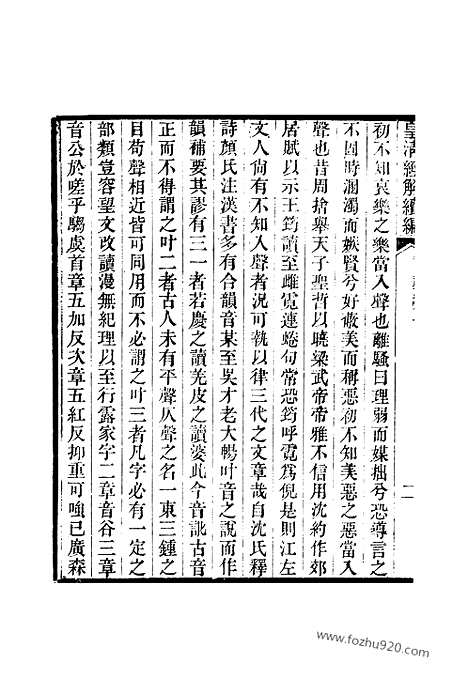 皇清經解續編
二
初不知哀樂之樂當入聲也離騷曰理弱而媒拙兮恐導言之
不固時溷濁而嫉賢兮好蔽美而稱惡初不知美惡之惡當入
聲也昔周捨舉天子聖哲以曉梁武帝帝雅不信用沈約作郊
居賦以示王筠讀至雌霓連蜷句常恐筠呼霓爲倪是則江左
文人尙有不知入聲者況可執以律三代之文章哉自沈氏釋
詩顏氏注漢書多有合韻音某至吳才老大暢叶音之說而作
韻補要其謬有三一者若慶之讀羌皮之讀婆此今音訛古音
正而不得謂之叶二者古人未有平聲仄聲之名一東三鍾之
目苟聲相近皆可同用而不必謂之叶三者凡字必有一定之
部類豈容望文改讀漫無紀理以至行露家字二章音谷三章
音公於嗟乎騶虞首章五加反次章五紅反抑重可嗤已廣森
www.fozhu920.com